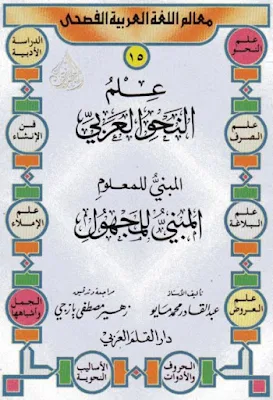 معالم اللغة العربية الفصحى
١٥
علم
النحو
الدراسة
الأدبية
عِلمُ
النحو العَربيّ
علم
الصرف
فن
الإنشاء
المبنيُّ للمعلوم
المبنيُّ للمجهُول
علم
البلاغة
علم
الإملاء
تأليف الأستاذ
عبد القادر محمد مايو
مراجعة وتدقيق
زهير مصطفى يازجي
علم
العروض
الجمل
وأشباهها
دار القلم العربي
الحروف
والأدوات
الأساليب
النحوية